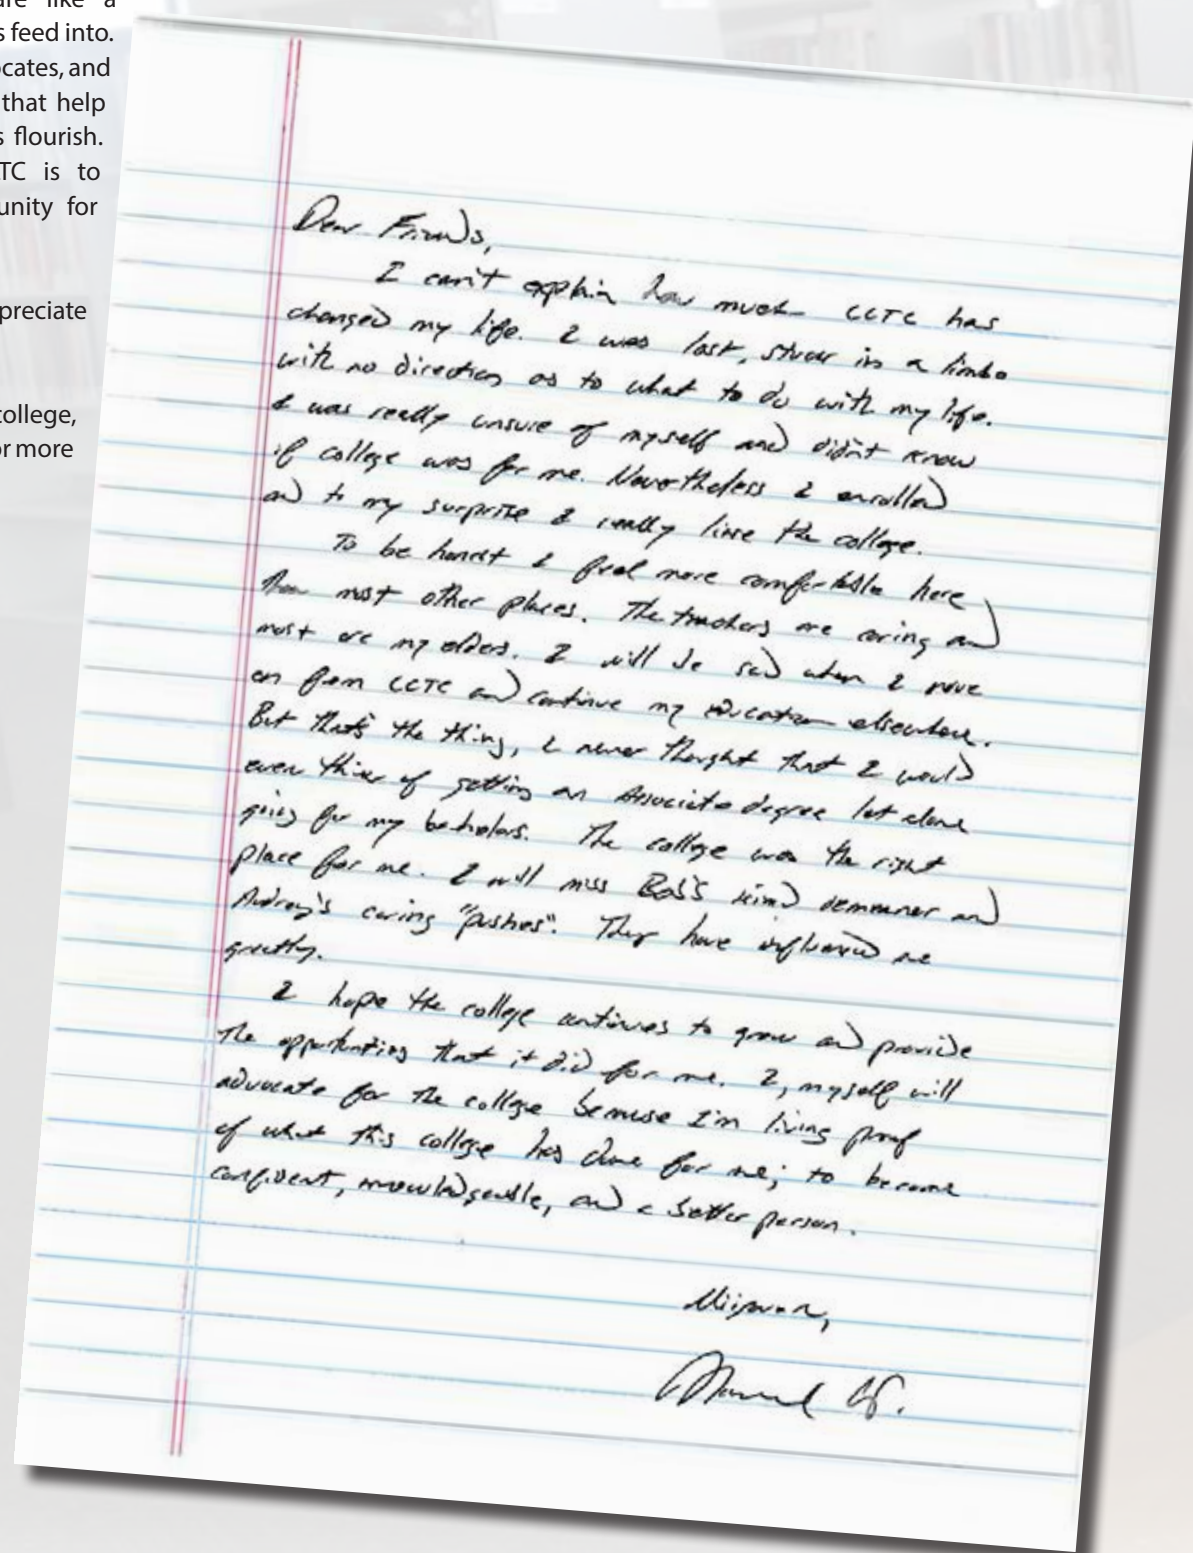 are like a
s feed into.
ocates, and
that help
s flourish.
TC is to
unity for
preciate
college,
or more
Dear Friends,
I can't explain how much CCTC has
changed my life. I was lost, stuck in a limbo
with no direction as to what to do with my life.
I was really unsure of myself and didn't know
if college was for me. Nevertheless I enrolled
and to my surprise I really like the college.
To be honest I feel more comfortable here
than most other places. The teachers are caring and
most are my elders. I will be sad when I move
on from CCTC and continue my education elsewhere.
But that's the thing, I never thought that I would
even think of getting an Associate degree let alone
going for my bachelors. The college was the right
place for me. I will miss Bob's kind demeanor and
Audrey's caring "pushes". They have influenced me
greatly.
I hope the college continues to grow and provide
the opportunities that it did for me. I, myself will
advocate for the college because I'm living proof
of what this college has done for me; to become
confident, knowledgeable, and a better person.